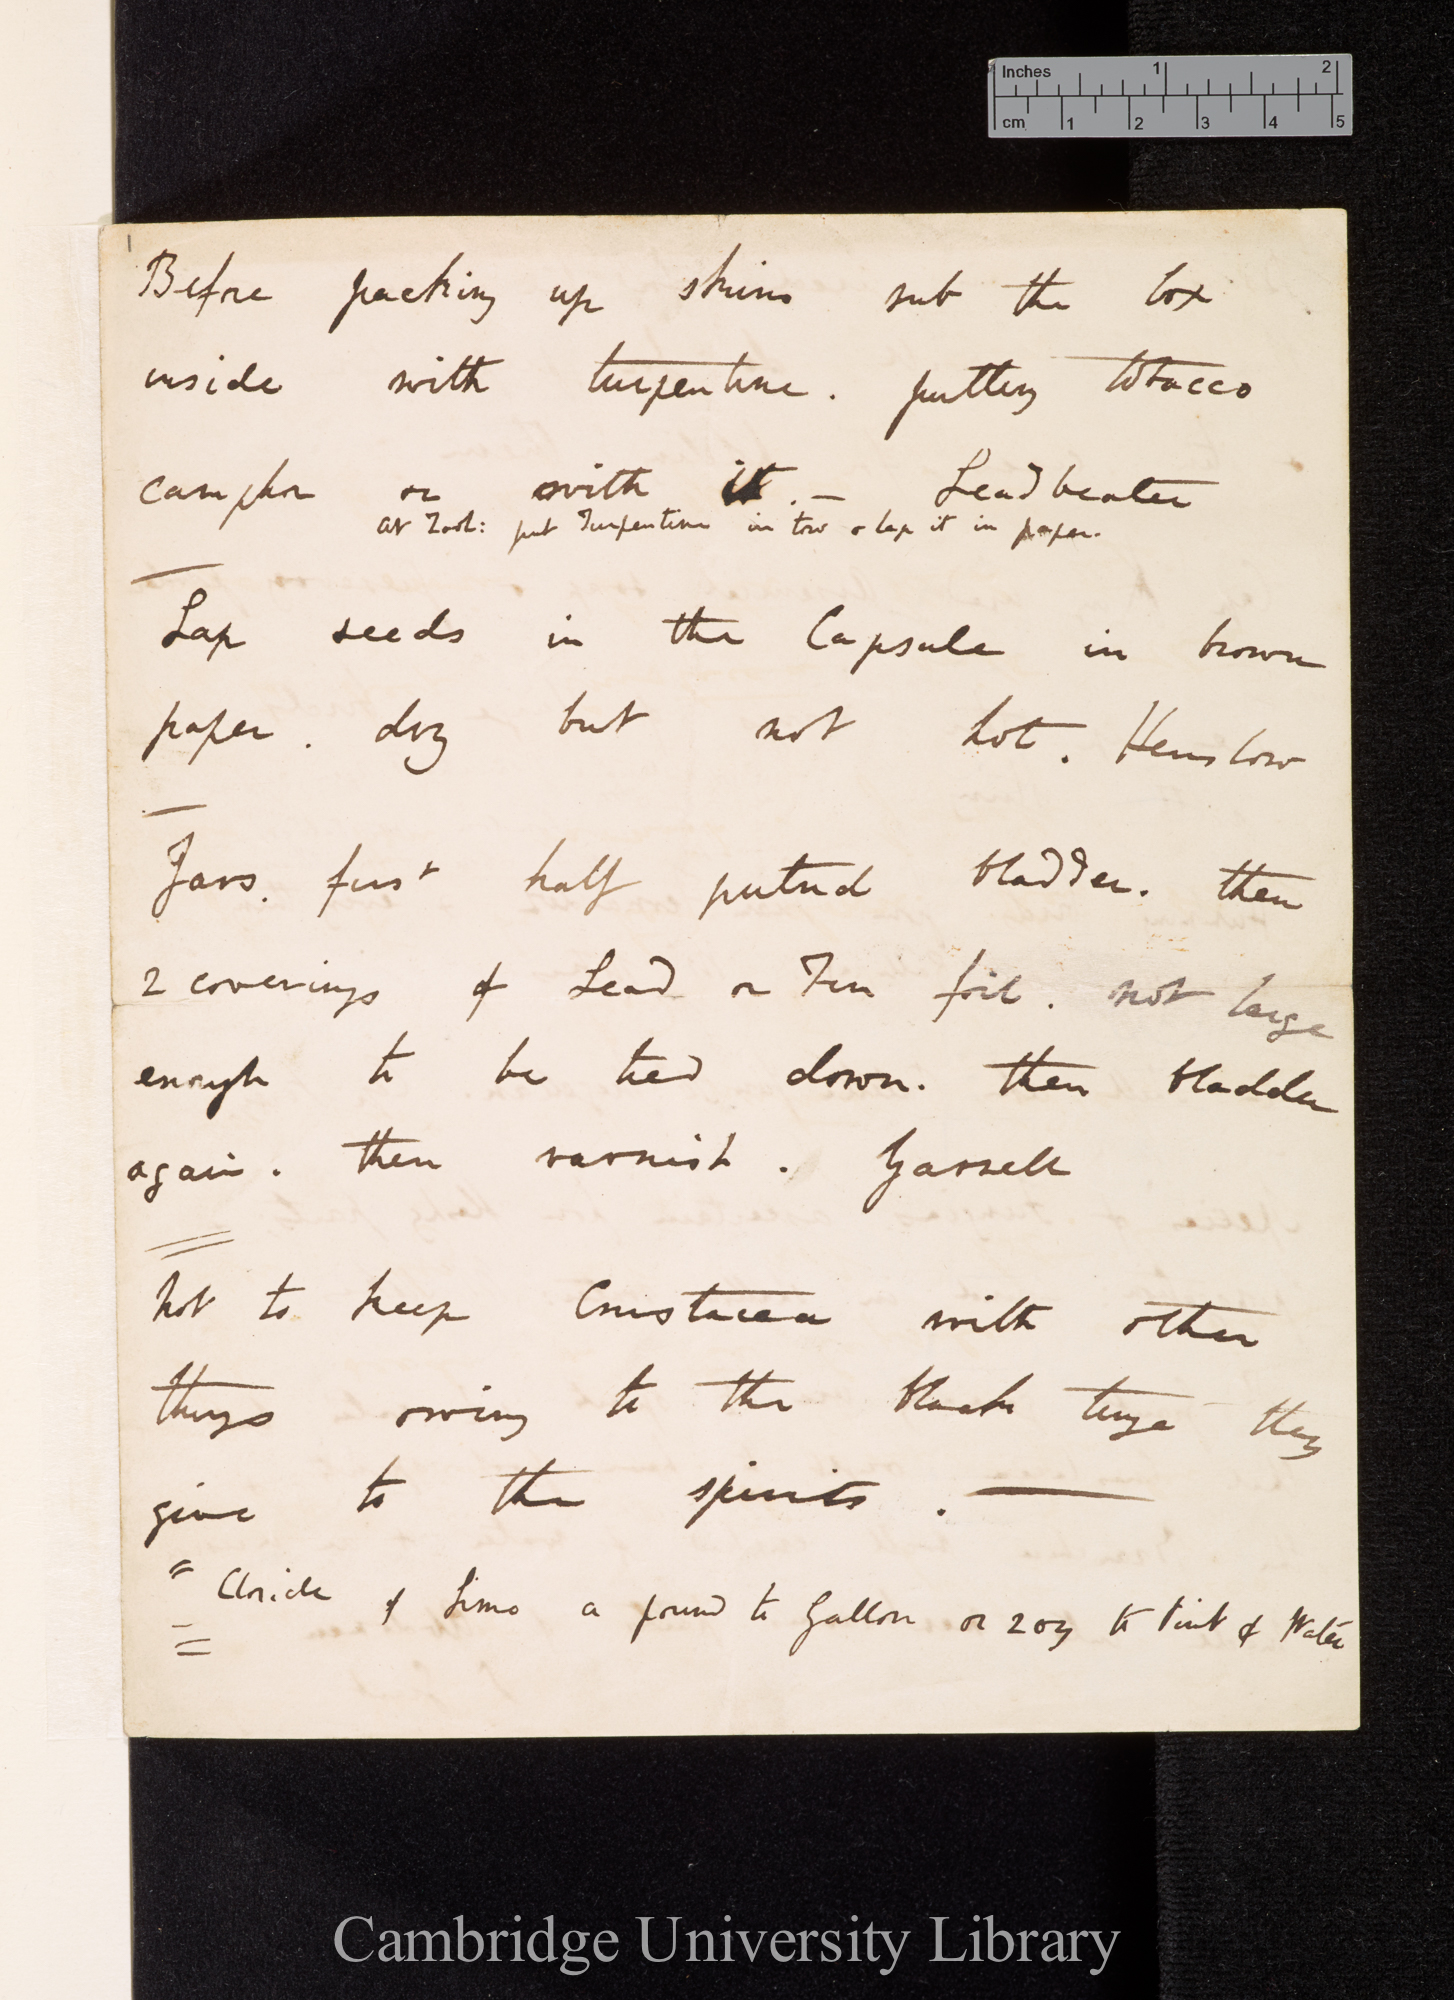 Inches 1 2
cm 1 2 3 4 5
Before packing up skins rub the box
inside with turpentine. putting tobacco
camphor or with it. — Leadbeater
at Zool: put Turpentine in tow & lap it in paper.
Lap seeds in the Capsule in brown
paper. dry but not hot. Henslow
Jars. first half putrid bladder. then
2 coverings of Lead or Tin foil. not large
enough to be tied down. then bladder
again. then varnish. Yarrell
Not to keep Crustacea with other
things owing to the black tinge they
give to the spirits. —
Cloride of Lime a pound to Gallon or 2 oz to Pint of Water
Cambridge University Library